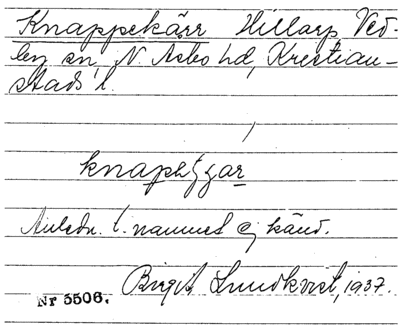 Knappekärr Hillarp, Ved-
by sn, N. Åsbo hd, Kristian-
stads l.
Anledn. t. namnet ej känd.
Birgit Lundkvist, 1937.
Nr 5506.